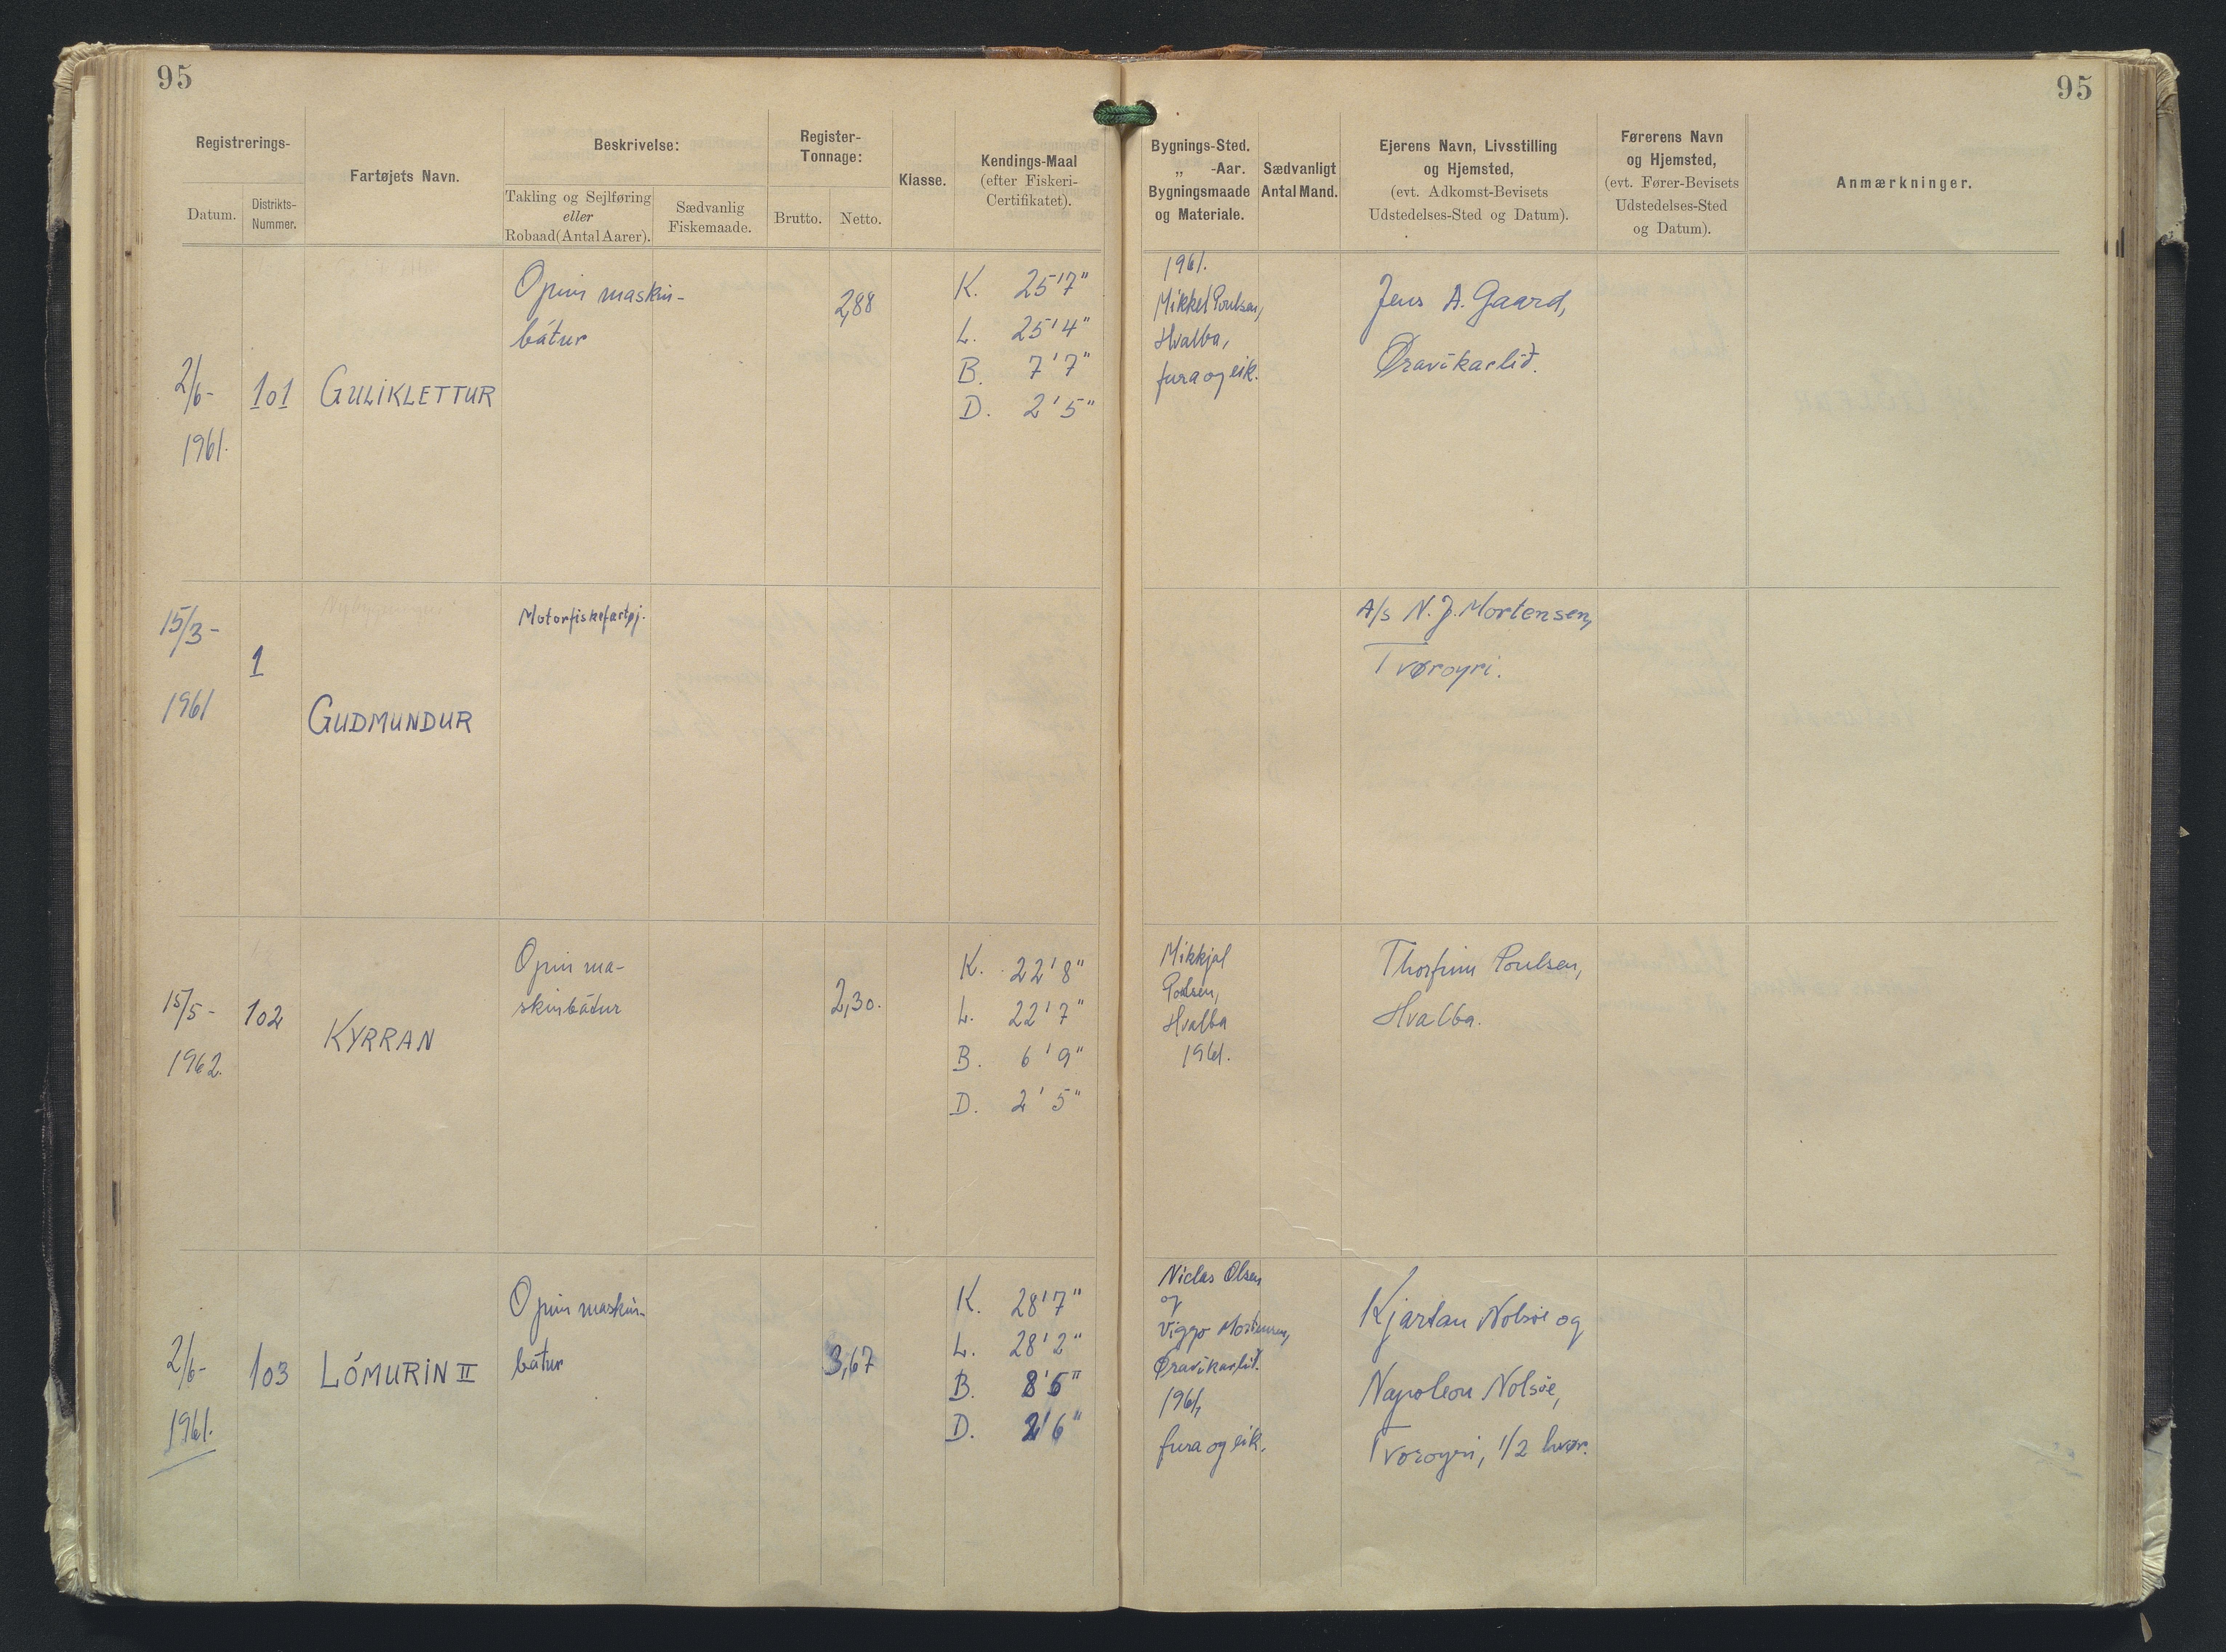 95
95
Registrerings-
Datum.
Distrikts-
Nummer.
Fartøjets Navn.
Beskrivelse:
Takling og Sejlføring
eller
Robaad (Antal Aarer).
Sædvanlig
Fiskemaade.
Register-
Tonnage:
Brutto.
Netto.
Klasse.
Kendings-Maal
(efter Fiskeri-
Certifikatet).
Bygnings-Sted.
„ -Aar.
Bygningsmaade
og Materiale.
Sædvanligt
Antal Mand.
Ejerens Navn, Livsstilling
og Hjemsted,
(evt. Adkomst-Bevisets
Udstedelses-Sted og Datum).
Førerens Navn
og Hjemsted,
(evt. Fører-Bevisets
Udstedelses-Sted
og Datum).
Anmærkninger.
2/6-
1961.
101
GULIKLETTUR
Opin maskin-
bátur
2,88
K. 25'7"
L. 25'4"
B. 7'7"
D. 2'5"
1961.
Mikkel Poulsen,
Hvalba,
fura og eik.
Jens A. Gaard,
Øravíkarlið.
15/3-
1961
1
GUDMUNDUR
Motorfiskefartøj.
A/s N. J. Mortensen,
Tvøroyri.
15/5-
1962.
102
KYRRAN
Opin ma-
skinbátur
2,30.
K. 22'8"
L. 22'7"
B. 6'9"
D. 2'5"
Mikkjal
Poulsen,
Hvalba
1961.
Thorfinn Poulsen,
Hvalba.
2/6-
1961.
103
LÓMURIN II
Opin maskin-
bátur
3,67
K. 28'7"
L. 28'2"
B. 8'5"
D. 2'6"
Niclas Olsen
og
Viggo Mortensen,
Øravíkarlið.
1961,
fura og eik.
Kjartan Nolsøe og
Napoleon Nolsøe,
Tvøroyri, 1/2 hvør.